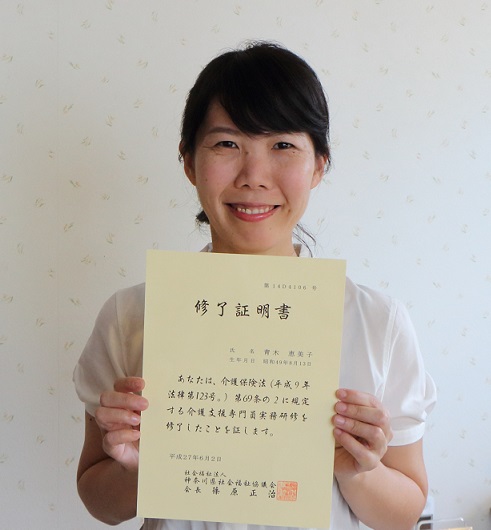 第14D4106号
修了証明書
氏名 青木 恵美子
生年月日 昭和49年8月13日
あなたは、介護保険法(平成9年
法律第123号。)第69条の2に規定
する介護支援専門員実務研修を
修了したことを証します。
平成27年6月2日
社会福祉法人
神奈川県社会福祉協議会
会長 篠原正治